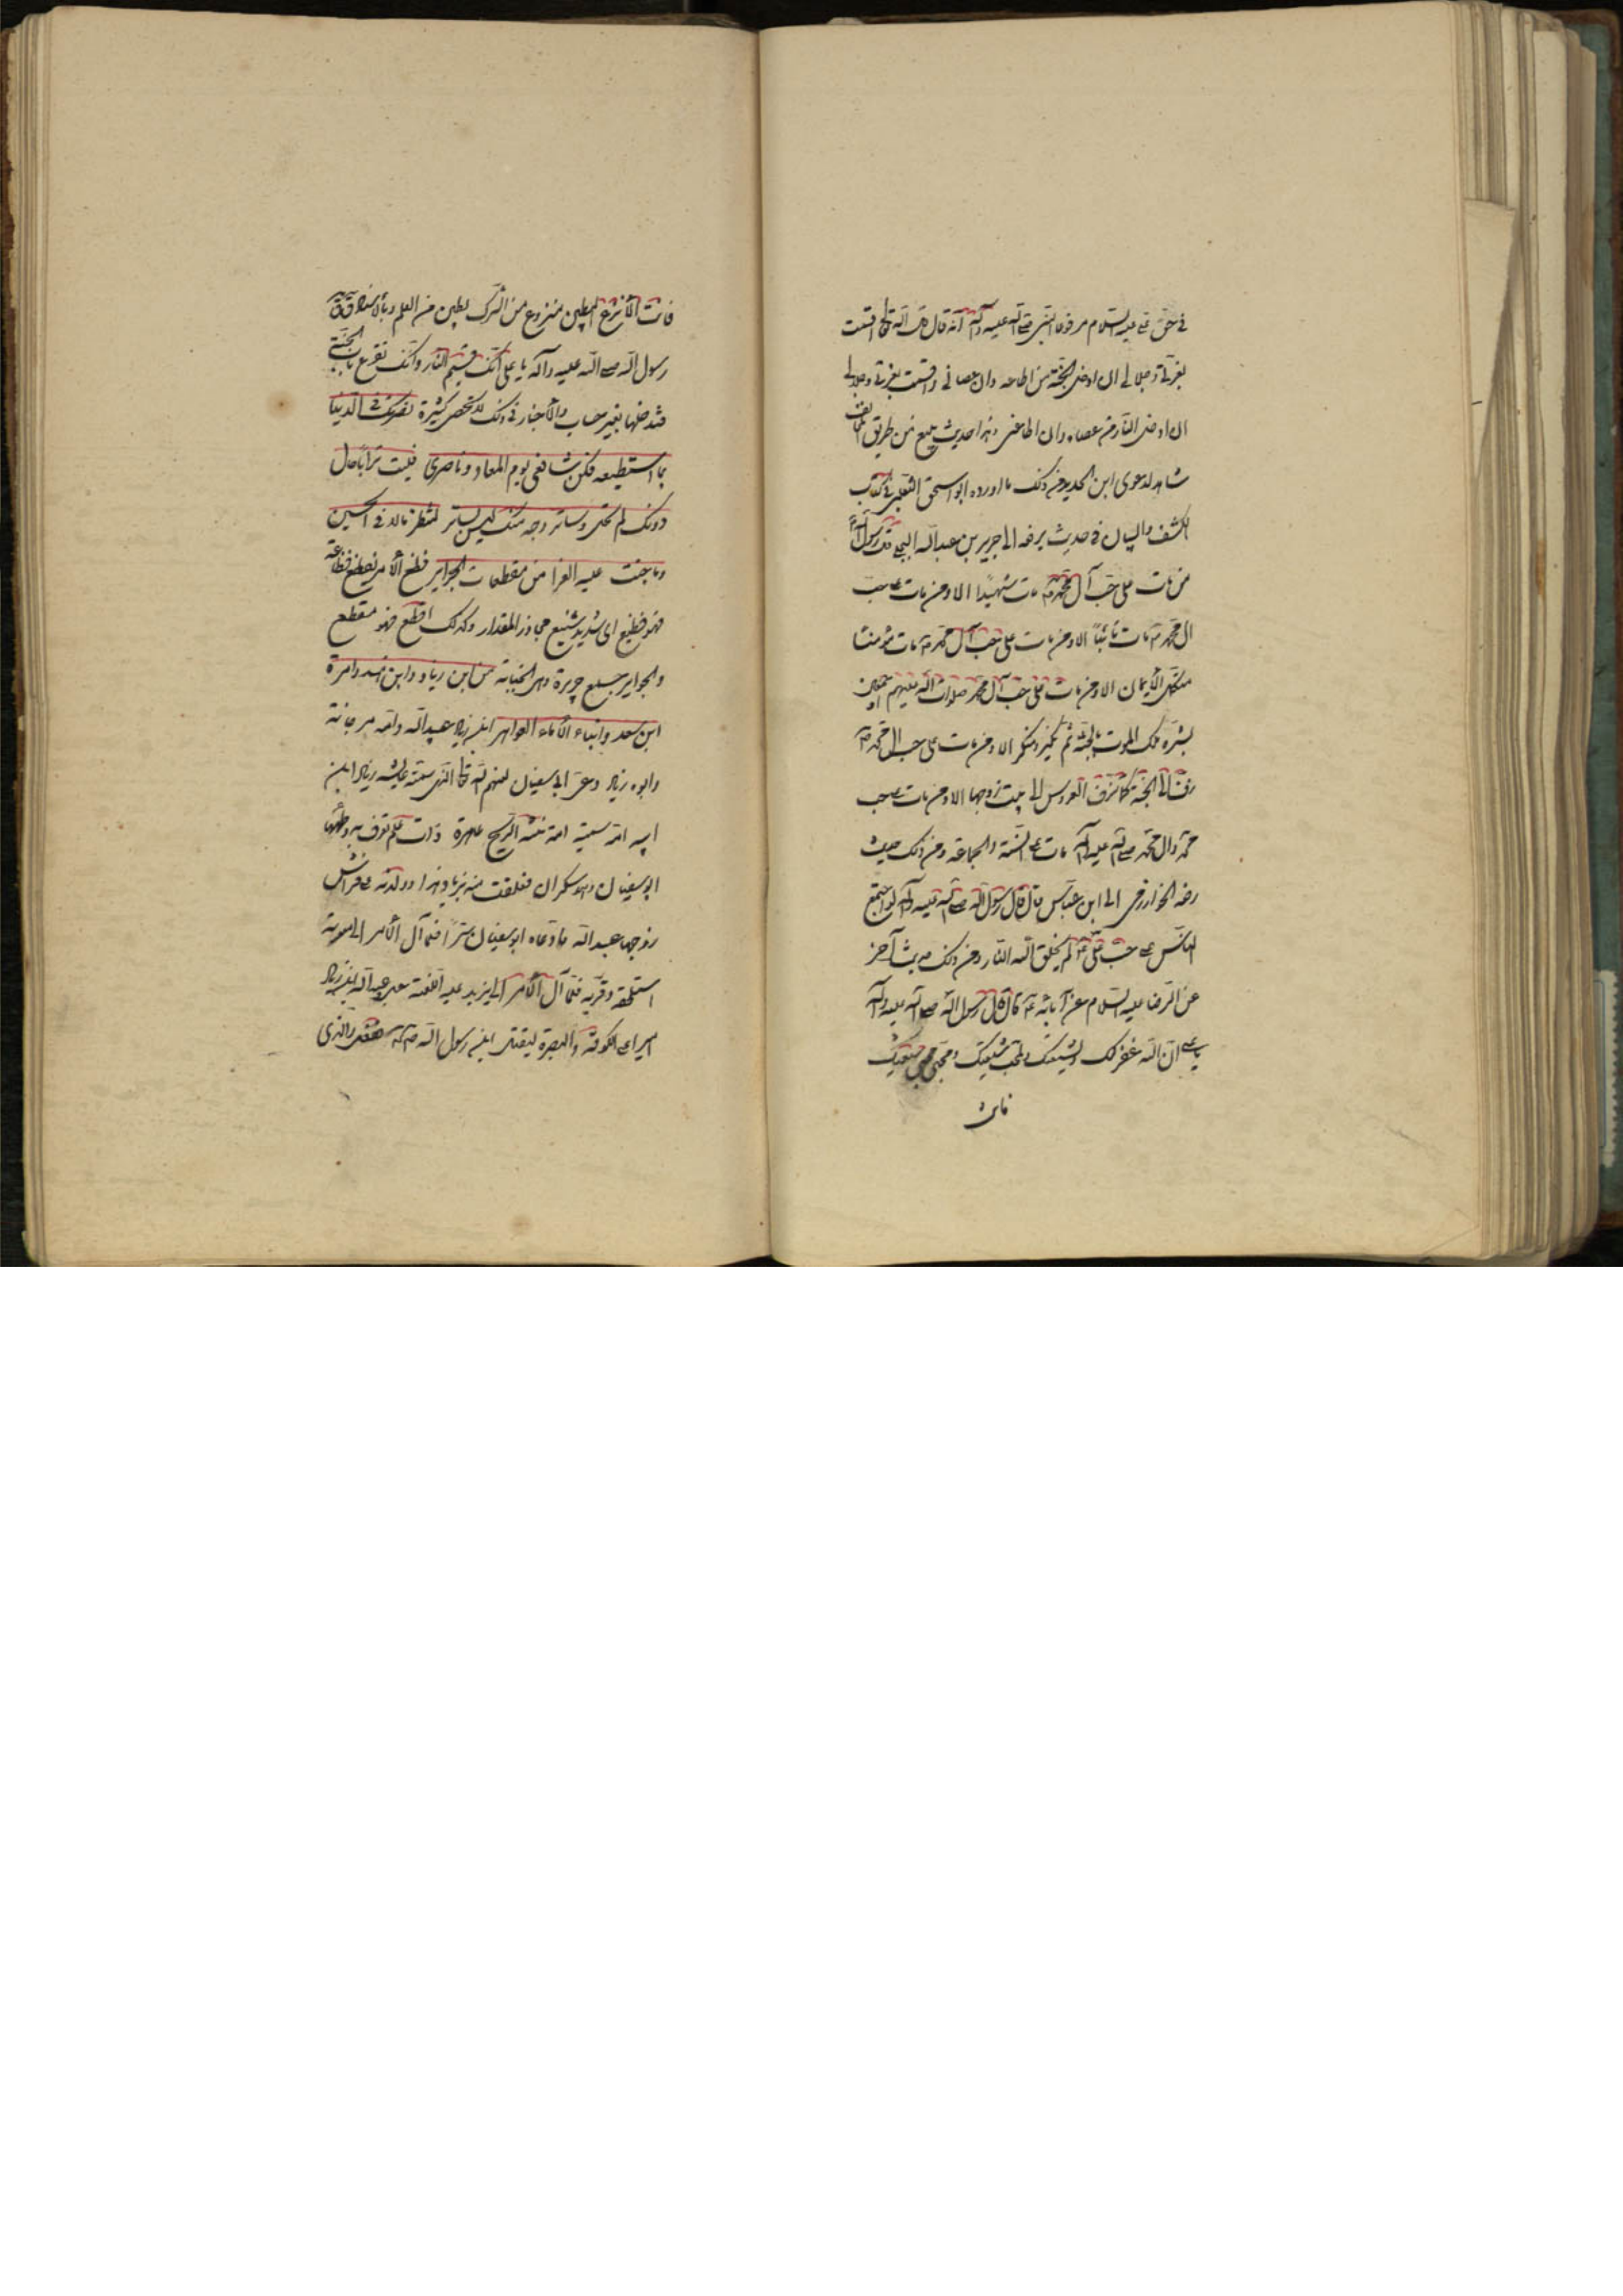 في حق علي عليه السلام مرفوعا النبي صلى الله عليه وآله انه قال قال الله تعالى اقسمت
بعزتي وجلالي ان ادخل الجنة من اطاعه وان عصاني واقسمت بعزتي وجلالي
ان ادخل النار من عصاه وان اطاعني وهذا حديث من طريق المخالف
شاهد لدعوى ابن الحديد ومن ذلك ما اورده ابو اسحق الثعلبي في كتاب
الكشف والبيان في حديث يرفعه الى جرير بن عبد الله البجلي قال رسول الله
من مات على حب آل محمد مات شهيدا الا ومن مات على حب
ال محمد مات تائبا الا ومن مات على حب آل محمد مات مؤمنا
مستكمل الايمان الا ومن مات على حب آل محمد صلوات الله عليهم اجمعين
بشره ملك الموت بالجنة ثم نكير ومنكر الا ومن مات على حب ال محمد
زف الى الجنة كما تزف العروس الى بيت زوجها الا ومن مات على حب
محمد وال محمد صلى الله عليه وآله مات على السنة والجماعة ومن ذلك حديث
رفعه الخوارزمي الى ابن عباس قال قال رسول الله صلى الله عليه وآله لو اجتمع
الناس على حب علي لم يخلق الله النار ومن ذلك حديث آخر
عن الرضا عليه السلام عن آبائه قال قال رسول الله صلى الله عليه وآله
يا علي ان الله غفر لك ولشيعتك ولمحب شيعتك ومحبي محبي شيعتك
فانت
فانت الأنزع البطين منزوع من الشرك بطين من العلم وبالاسناد قال
رسول الله صلى الله عليه وآله يا علي انك قسيم النار وانك تقرع باب الجنة
فتدخلها بغير حساب والأخبار في ذلك لا تحصى كثيرة نصرتك في الدنيا
بما استطيعه فكن شافعي يوم المعاد وناصري فليت ترابا حال
دونك لم يحل وساتر وجه منك ليس بساتر لتنظر ما لاقى الحسين
وما جنت عليه العدا من مفظعات الجراير فظع الأمر يفظع فظاعة
فهو فظيع اي شديد شنيع جاوز المقدار وكذلك افظع فهو مفظع
والجراير جمع جريرة وهي الجناية من ابن زياد وابن هند وامرة
ابن سعد وابناء الأماء العواهر ابن زياد عبيد الله وامه مرجانة
وابوه زياد دعي ابي سفيان لعنهم الله تعالى الذي سمته عايشة زياد ابن
ابيه امه سمية امة عاهرة ذات علم تعرف به وطئها
ابو سفيان وهو سكران فعلقت منه بزياد هذا وولدته على فراش
زوجها عبيد الله فادعاه ابو سفيان سترا فلما آل الأمر الى معوية
استلحقه وقربه فلما آل الأمر الى يزيد عليه اللعنة عبيد الله بن زياد
اميرا على الكوفة والبصرة ليقتل ابن رسول الله والذي